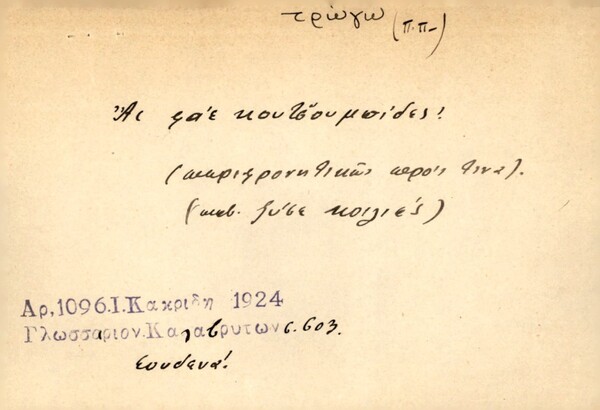 τρώγω (π.π-)
Ἂς φάε κουτσουμπίδες!
(περιφρονητικῶς πρός τινα).
(πβ. ξύσε κοιλιές)
Αρ,1096.Ι.Κακριδη 1924
Γλωσσαριον.Καλαβρυτων σ. 603.
Σουδενα!